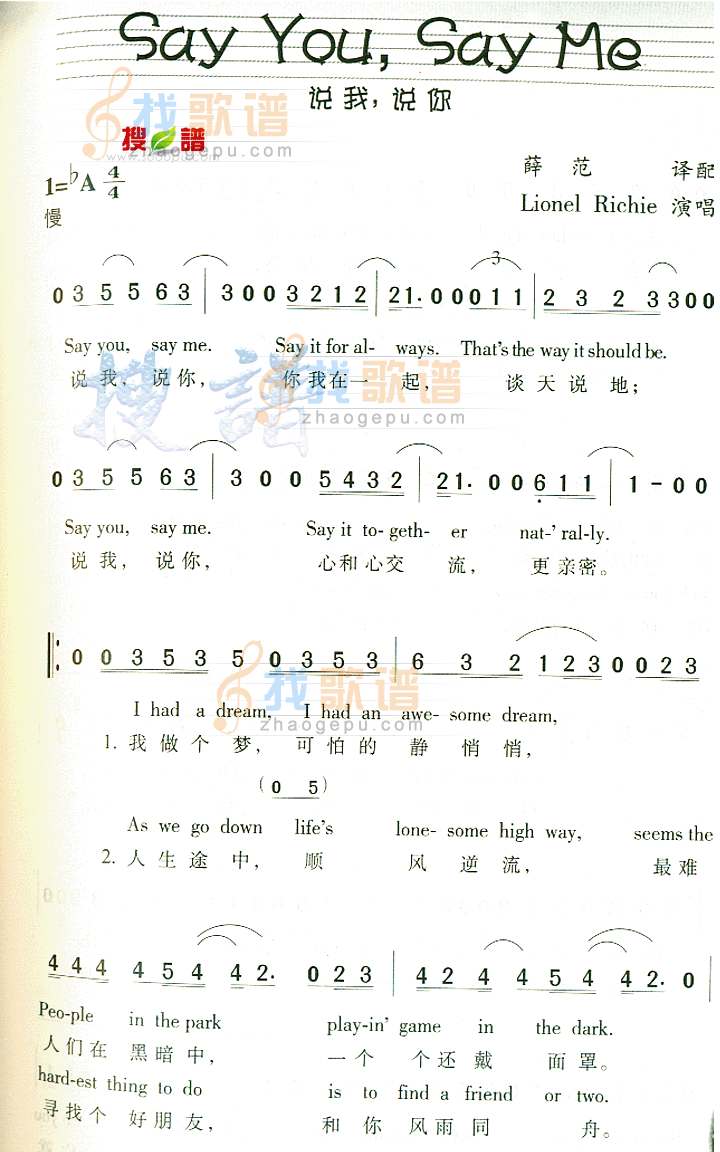 Say You, Say Me
说我，说你
找歌谱
搜谱
zhaogepu.com
1=♭A 4/4
薛范 译配
慢
Lionel Richie 演唱
0 3 5 5 6 3 | 3 0 0 3 2 1 2 | 2 1. 0 0 0 1 1 | 2 3 2 3 3 0 0
3
Say you, say me. Say it for al- ways. That's the way it should be.
说我，说你， 你我在一起， 谈天说地；
搜谱
找歌谱
zhaogepu.com
0 3 5 5 6 3 | 3 0 0 5 4 3 2 | 2 1. 0 0 6 1 1 | 1 - 0 0
Say you, say me. Say it to- geth- er nat-' ral-ly.
说我，说你， 心和心交流， 更亲密。
‖: 0 0 3 5 3 5 0 3 5 3 | 6 3 2 1 2 3 0 0 2 3
找歌谱
zhaogepu.com
I had a dream, I had an awe- some dream,
1. 我做个梦，可怕的静悄悄，
(0 5)
As we go down life's lone- some high way, seems the
2. 人生途中，顺风逆流，最难
4 4 4 4 5 4 4 2. 0 2 3 | 4 2 4 4 5 4 4 2. 0
Peo-ple in the park play-in' game in the dark.
人们在黑暗中， 一个个还戴面罩。
hard-est thing to do is to find a friend or two.
寻找个好朋友， 和你风雨同舟。
找歌谱
zhaogepu.com